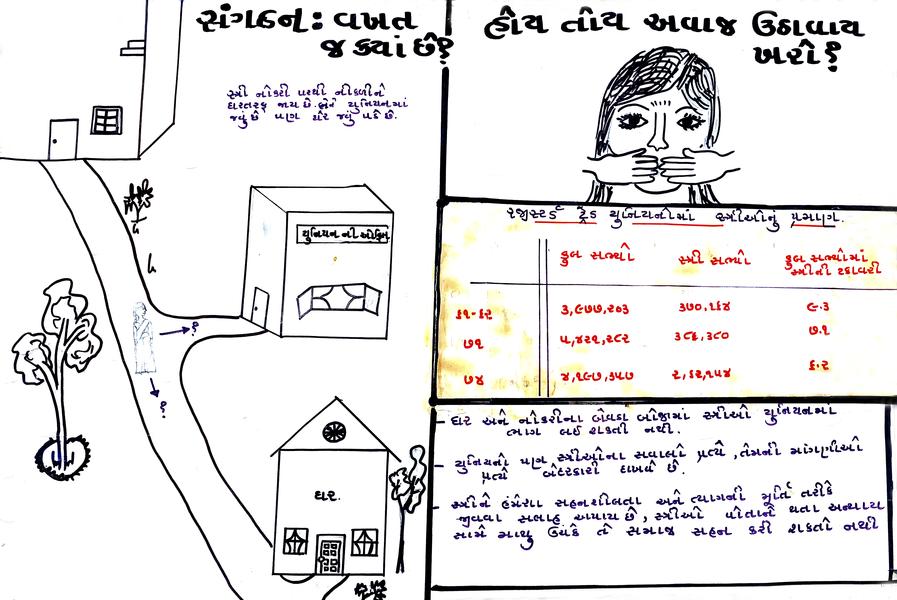 સંગઠન: વખત
જ ક્યાં છે?
હોય તોય અવાજ ઉઠાવાય
ખરો?
સ્ત્રી નોકરી પરથી નીકળીને
ઘરતરફ જાય છે. એને યુનિયનમાં
જવું છે પણ ઘેર જવું પડે છે.
યુનિયન ની ઓફિસ
?
?
ઘર.
રજીસ્ટર્ડ ટ્રેડ યુનિયનોમાં સ્ત્રીઓનું પ્રમાણ.
કુલ સભ્યો સ્ત્રી સભ્યો કુલ સભ્યોમાં
સ્ત્રીની ટકાવારી
૬૧-૬૨ ૩,૯૭૭,૨૦૩ ૩૭૦,૨૬૪ ૯.૩
૭૧ ૫,૪૨૧,૨૮૨ ૩૮૬,૩૮૦ ૭.૧
૭૪ ૪,૧૯૭,૩૫૭ ૨,૬૨,૧૫૪ ૬.૨
- ઘર અને નોકરીના બેવડા બોજામાં સ્ત્રીઓ યુનિયનમાં
ભાગ લઈ શકતી નથી.
- યુનિયનો પણ સ્ત્રીઓના સવાલો પ્રત્યે, તેમની માંગણીઓ
પ્રત્યે બેદરકારી દાખવે છે.
- સ્ત્રીને હંમેશા સહનશીલતા અને ત્યાગની મૂર્તિ તરીકે
જીવવા સલાહ અપાય છે, સ્ત્રીઓ પોતાને થતા અન્યાય
સામે માથુ ઉંચકે તે સમાજ સહન કરી શકતો નથી